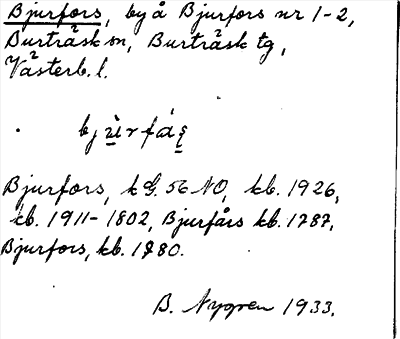 Bjurfors, by å Bjurfors nr 1-2,
Burträsk sn, Burträsk tg,
Västerb. l.
bjùrfáș
Bjurfors, kG. 56 NO, kb. 1926,
kb. 1911-1802, Bjurfårs kb. 1787,
Bjurfors, kb. 1780.
B. Nygren 1933.